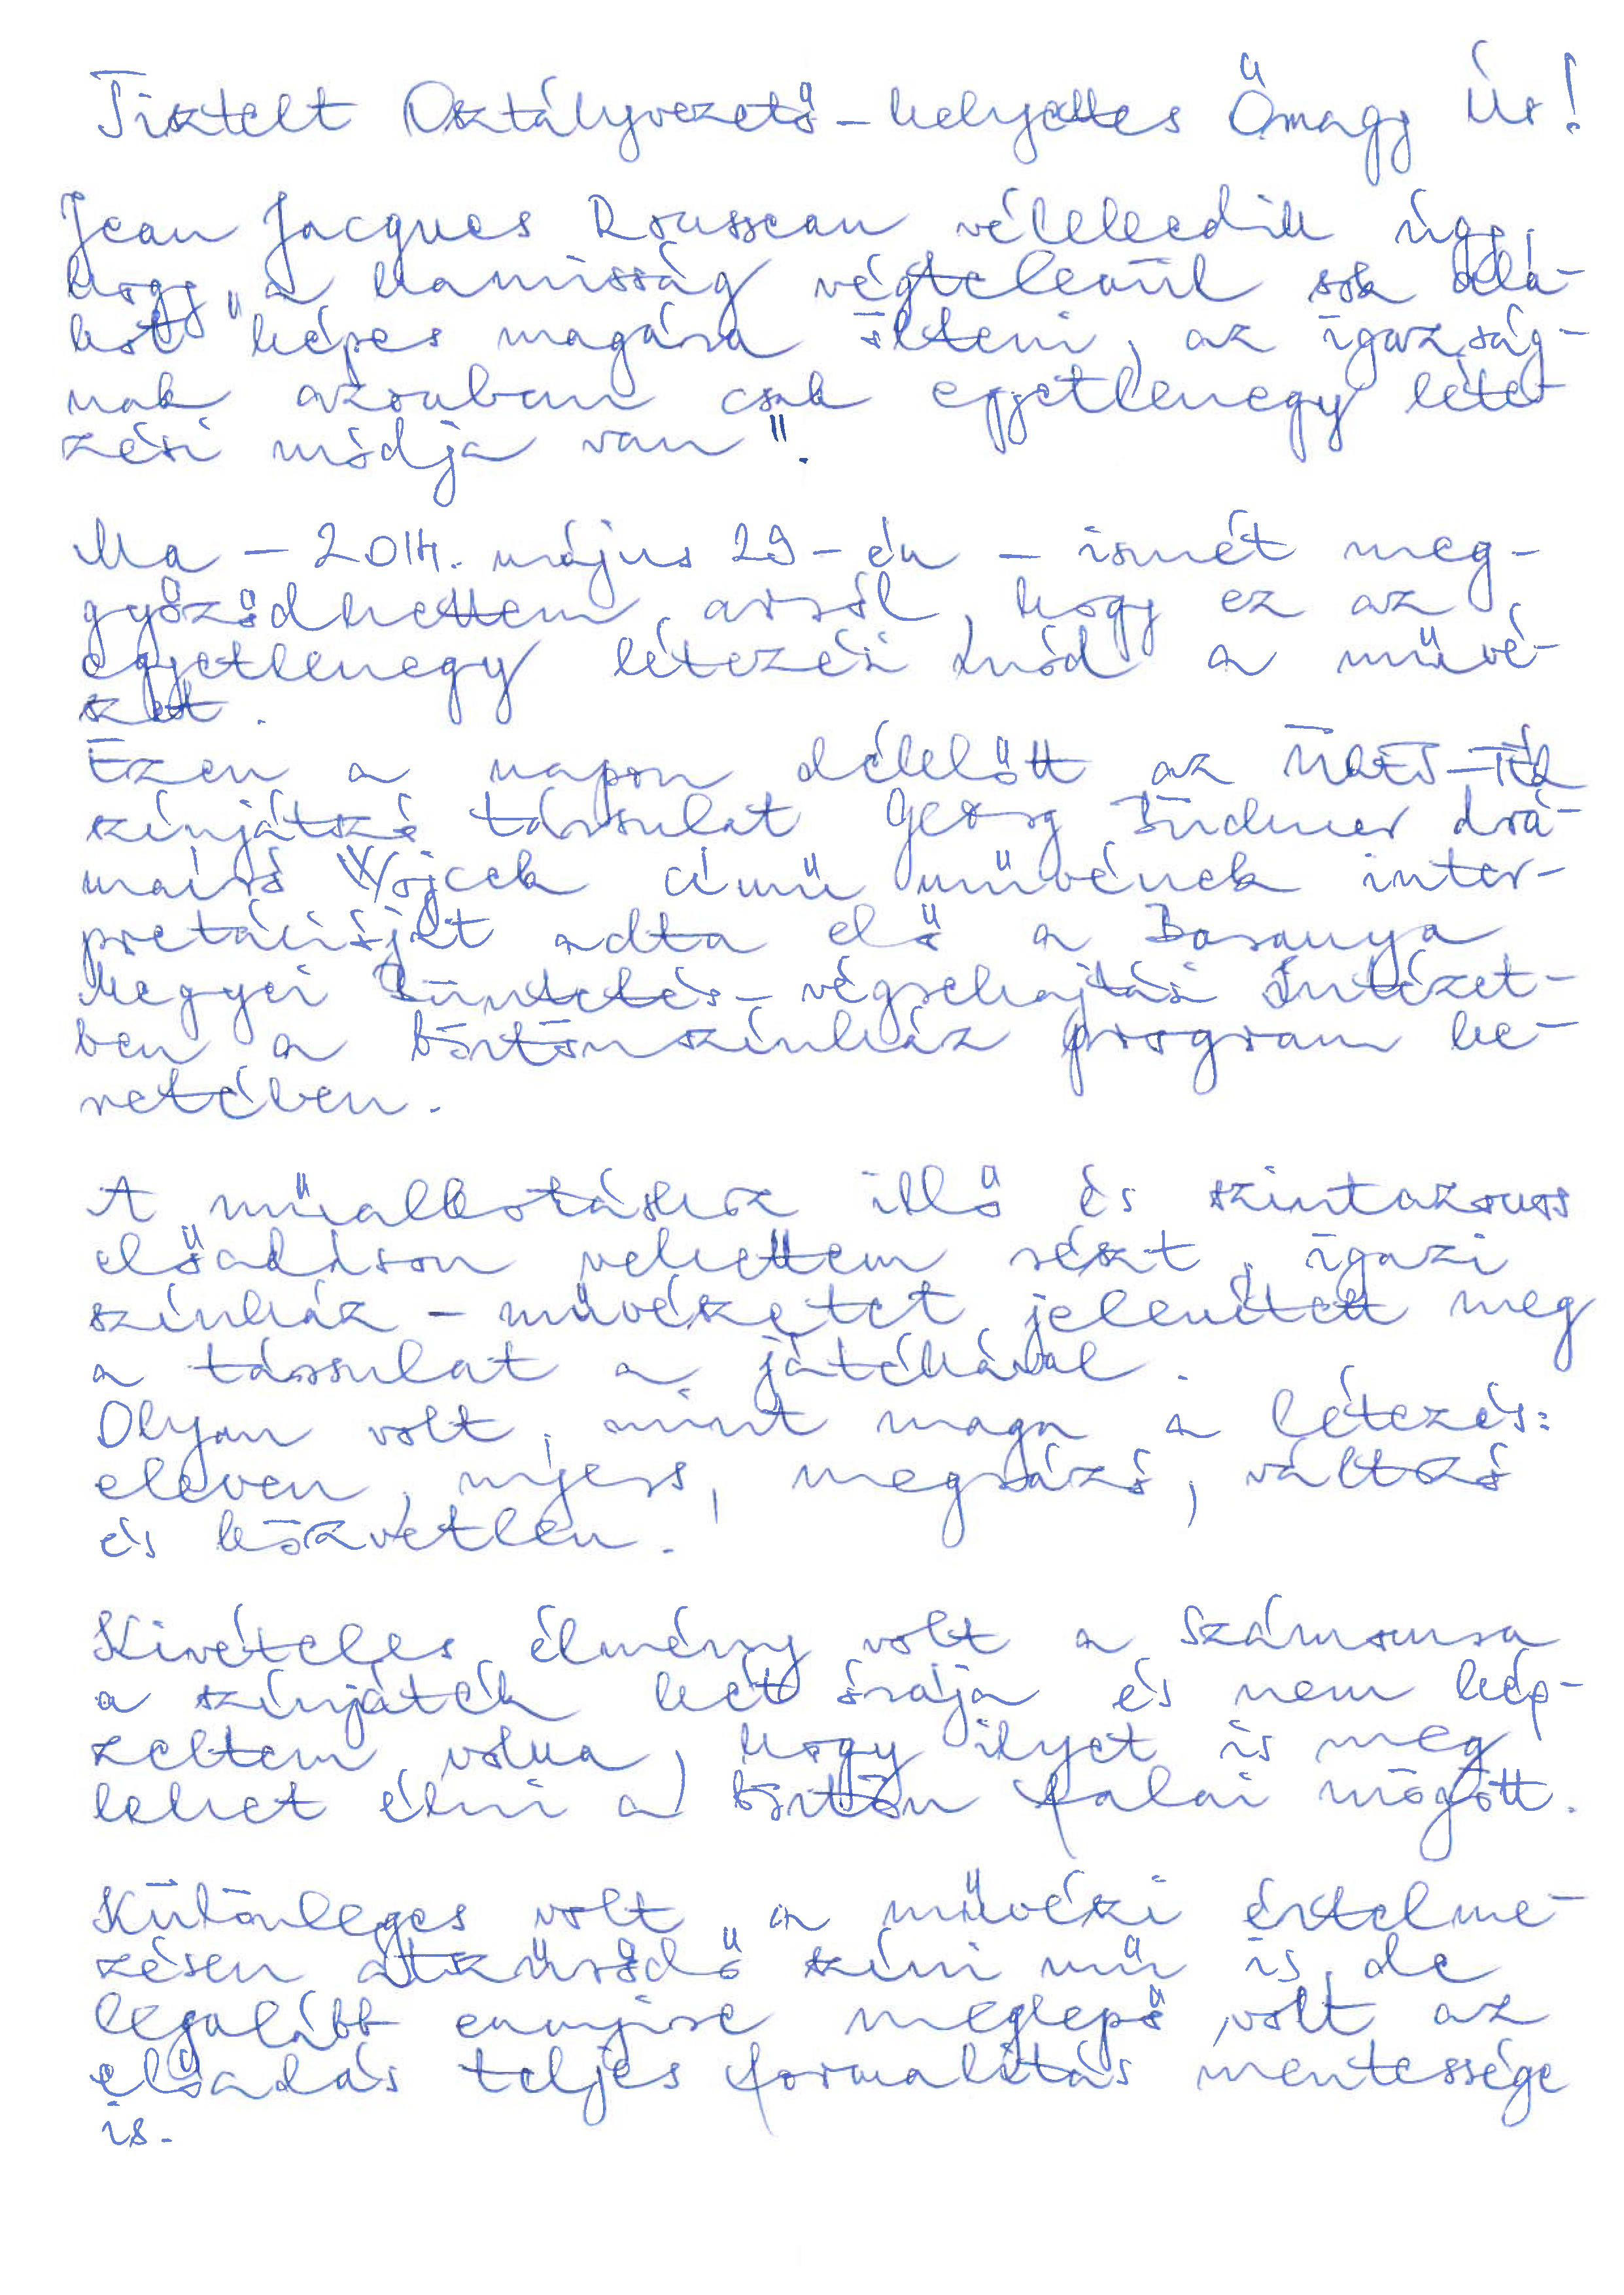 Tisztelt Osztályvezető-helyettes Őrnagy Úr!
Jean Jacques Rousseau vélekedik úgy,
hogy „a hamisság végtelenül sok ala-
kot képes magára ölteni, az igazság-
nak azonban csak egyetlenegy léte-
zési módja van".
Ma – 2014. május 29-én – ismét meg-
győződhettem arról, hogy ez az
egyetlenegy létezési mód a művé-
szet.
Ezen a napon délelőtt az
színjátszó társulat Georg Büchner drá-
maíró Wojcek című művének inter-
pretációját adta elő a Baranya
Megyei Büntetés-végrehajtási Intézet-
ben a börtönszínház program ke-
retében.
A műalkotáshoz illő és színtazonos
előadáson vehettem részt, igazi
színház-művészetet jelenített meg
a társulat a játékával.
Olyan volt, mint maga a létezés:
eleven, nyers, megrázó, változó
és közvetlen.
Kivételes élmény volt a számomra
a színjáték két órája és nem kép-
zeltem volna, hogy ilyet is meg
lehet élni a börtön falai mögött.
Különleges volt a művészi értelme-
zésen átszűrődő színi mű is, de
legalább ennyire meglepő volt az
előadás teljes formalitás mentessége
is.